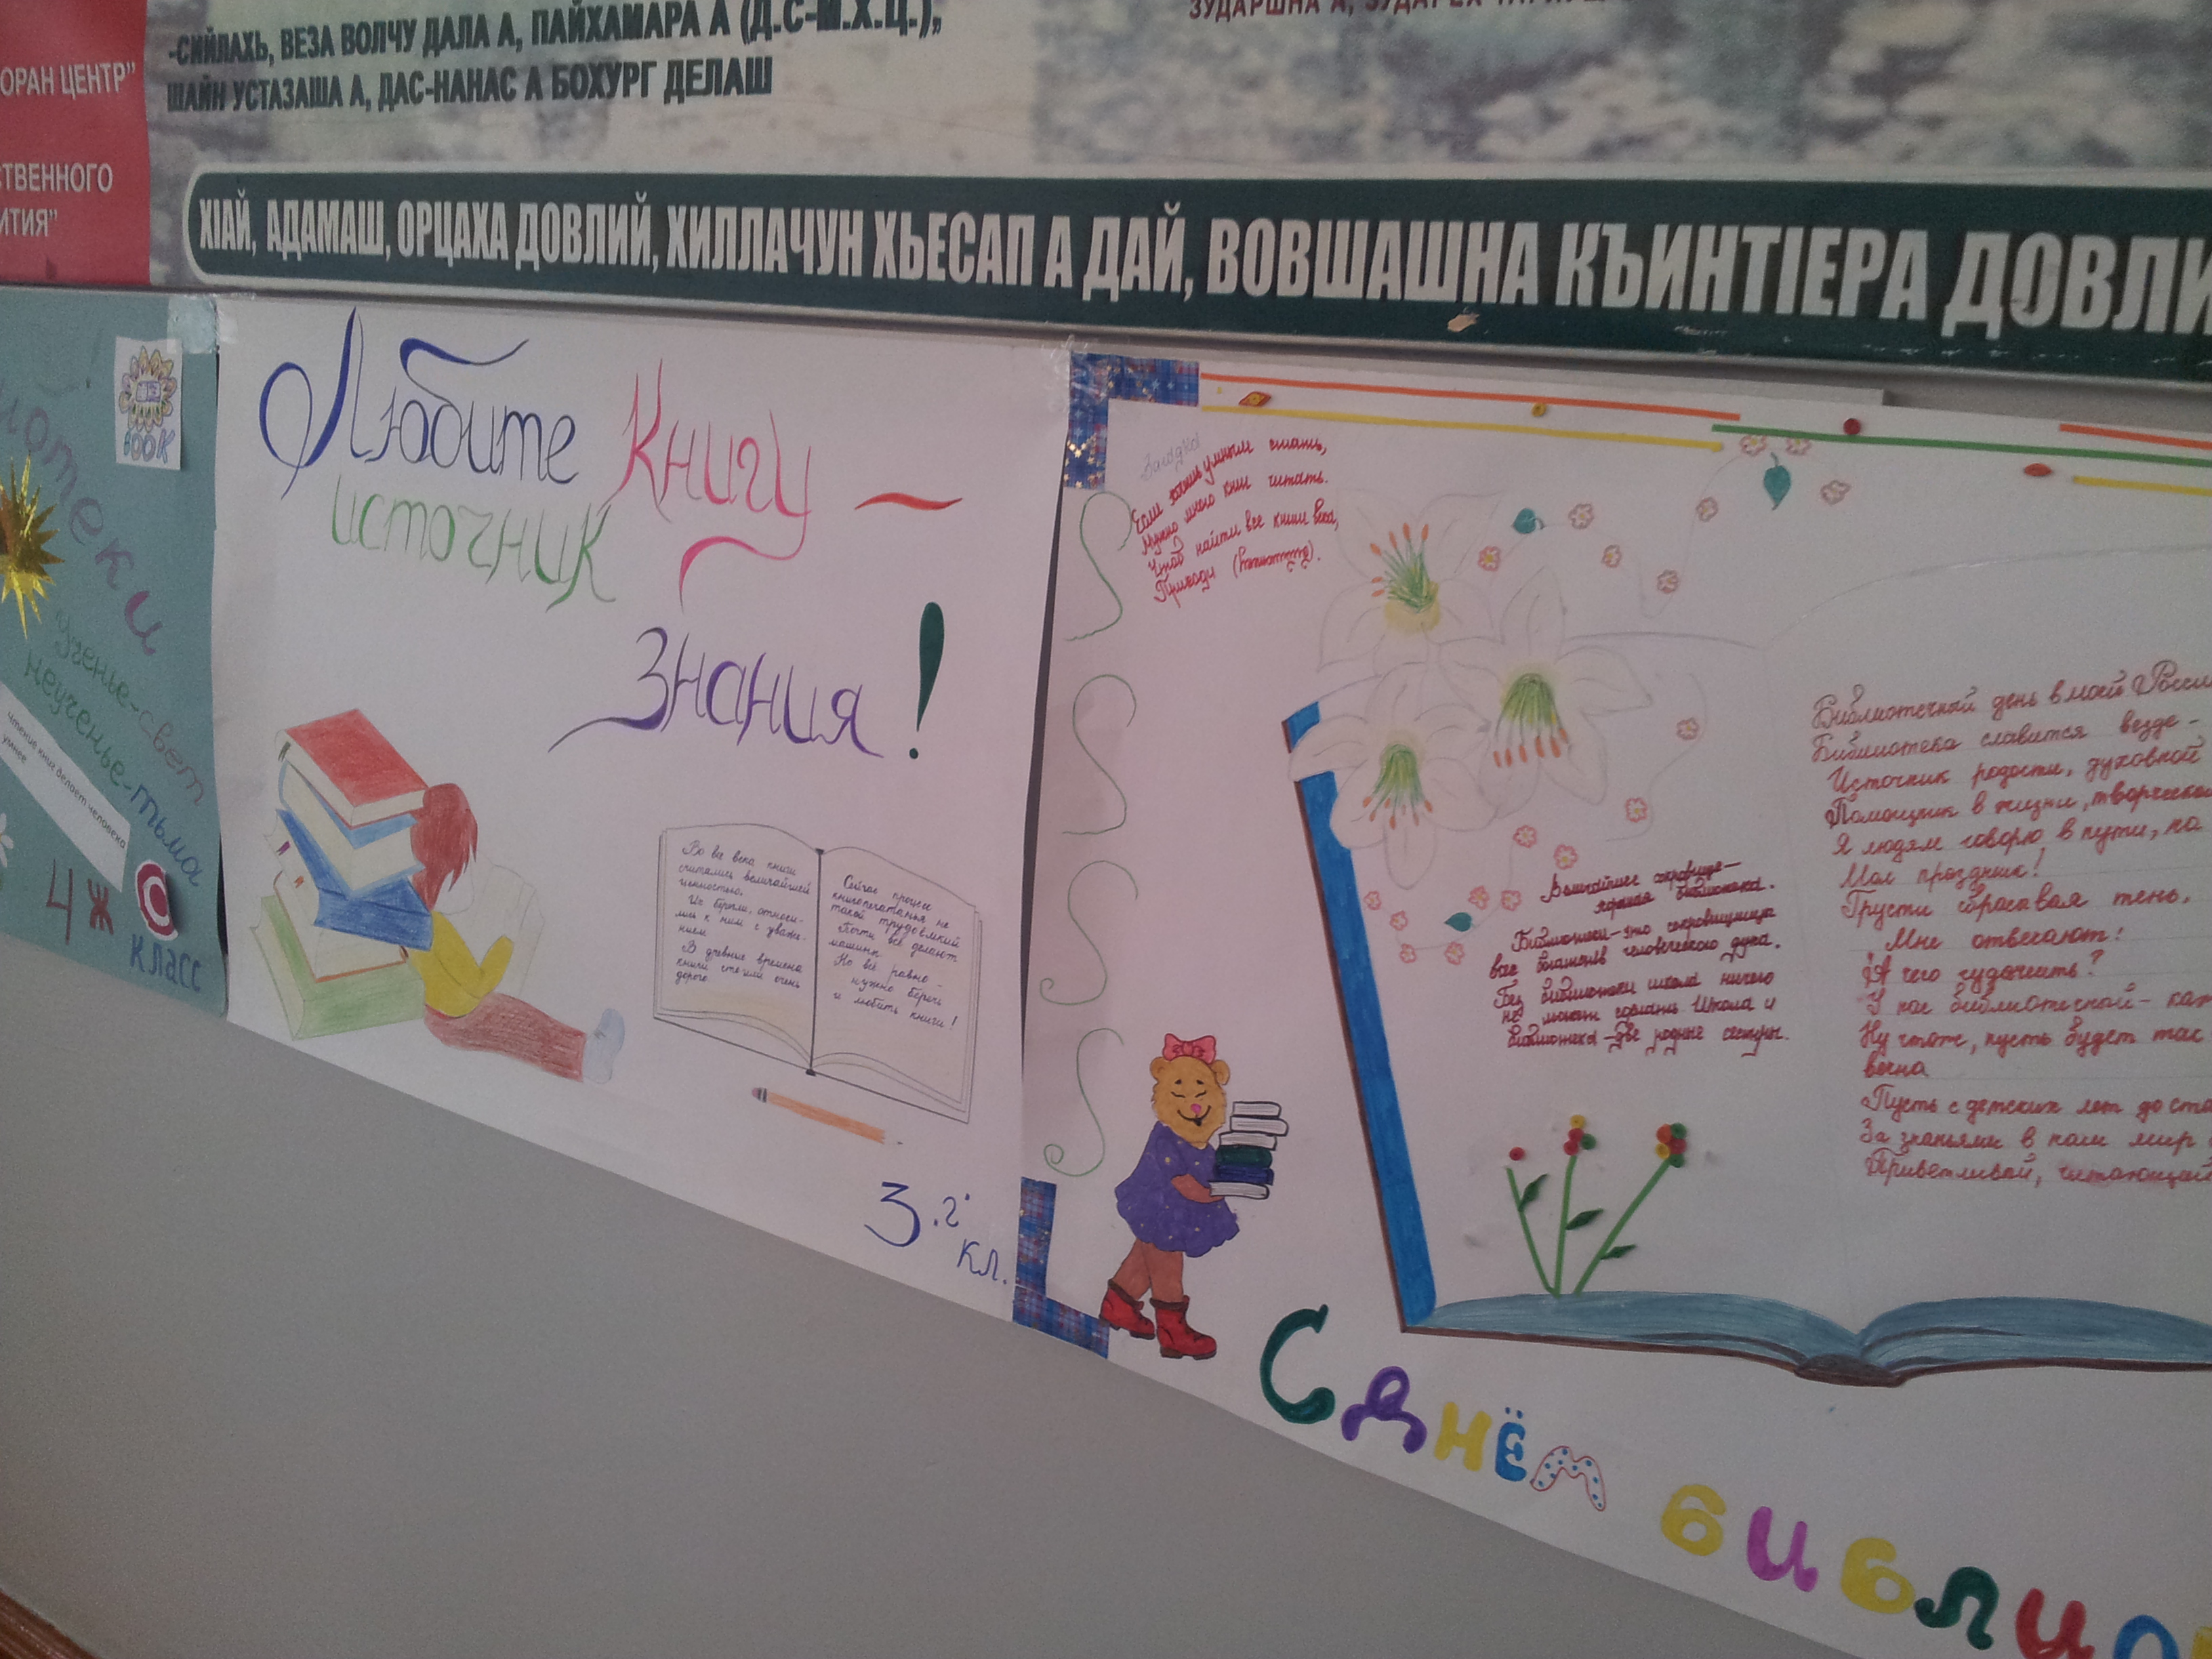 -СИЙЛАХЬ, ВЕЗА ВОЛЧУ ДАЛА А, ПАЙХАМАРА А (Д.С-М.Х.Ц.),
ШАЙН УСТАЗАША А, ДАС-НАНАС А БОХУРГ ДЕЛАШ
ОРАН ЦЕНТР"
СТВЕННОГО
ИТИЯ"
ХІАЙ, АДАМАШ, ОРЦАХА ДОВЛИЙ, ХИЛЛАЧУН ХЬЕСАП А ДАЙ, ВОВШАШНА КЪИНТІЕРА ДОВЛИ
отеки
BOOK
Ученье-свет
неученье-тьма
чтение книг делает человека
умнее
4 Ж
класс
Любите Книгу –
источник
Знания!
Во все века книги
считались величайшей
ценностью.
Их берегли, относи-
лись к ним с уваже-
нием
В древние времена
книги стоили очень
дорого
Сейчас процесс
книгопечатанья не
такой трудоёмкий
Почти всё делают
машины.
Но всё равно –
нужно беречь
и любить книги!
3 "г"
кл.
Загадки
Если хочешь умным стать,
Нужно много книг читать.
Чтоб найти все книги века,
Приходи
Величайшее сокровище–
хорошая библиотека.
Библиотеки-это сокровищница
всех богатств человеческого духа.
Без библиотеки школа ничего
не может сделать Школа и
библиотека-две родные сестры.
Библиотечный день в моей России
Библиотека славится везде -
Источник радости, духовной
Помощник в жизни, творческой
Я людям говорю в пути, на
Мой праздник!
Грусти сбрасывая тень.
Мне отвечают:
"А чего чудачить?
У нас библиотечный - каж
Ну что ж, пусть будет так
вечна
Пусть с детских лет до ста
За знаньями в наш мир
Приветливый, читающий
С днём библио